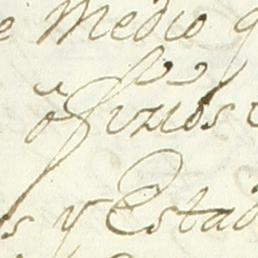 e Medio q
ofizios
s y Estad